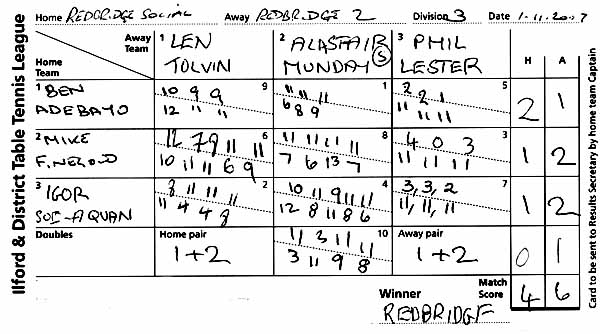 Ilford & District Table Tennis League
Home REDBRIDGE SOCIAL Away REDBRIDGE 2 Division 3 Date 1-11.2007
Away Team 1 LEN TOLVIN 2 ALASTAIR MUNDAY (S) 3 PHIL LESTER H A
Home Team
1 BEN ADEBAYO 9 1 5 2 1
10 9 9 11 11 11 2 2 1
12 11 11 6 8 9 11 11 11
2 MIKE 6 8 3 1 2
12 7 9 11 11 11 11 11 11 4 0 3
10 11 11 6 9 7 6 13 7 11 11 11
3 IGOR 2 4 7 1 2
8 11 11 11 10 11 9 11 11 3, 3, 2
11 4 4 8 12 8 11 8 6 11, 11, 11
Doubles Home pair 10 Away pair 0 1
1+2 11 3 11 11 1+2
3 11 9 8
Winner REDBRIDGE Match Score 4 6
Card to be sent to Results Secretary by home team Captain